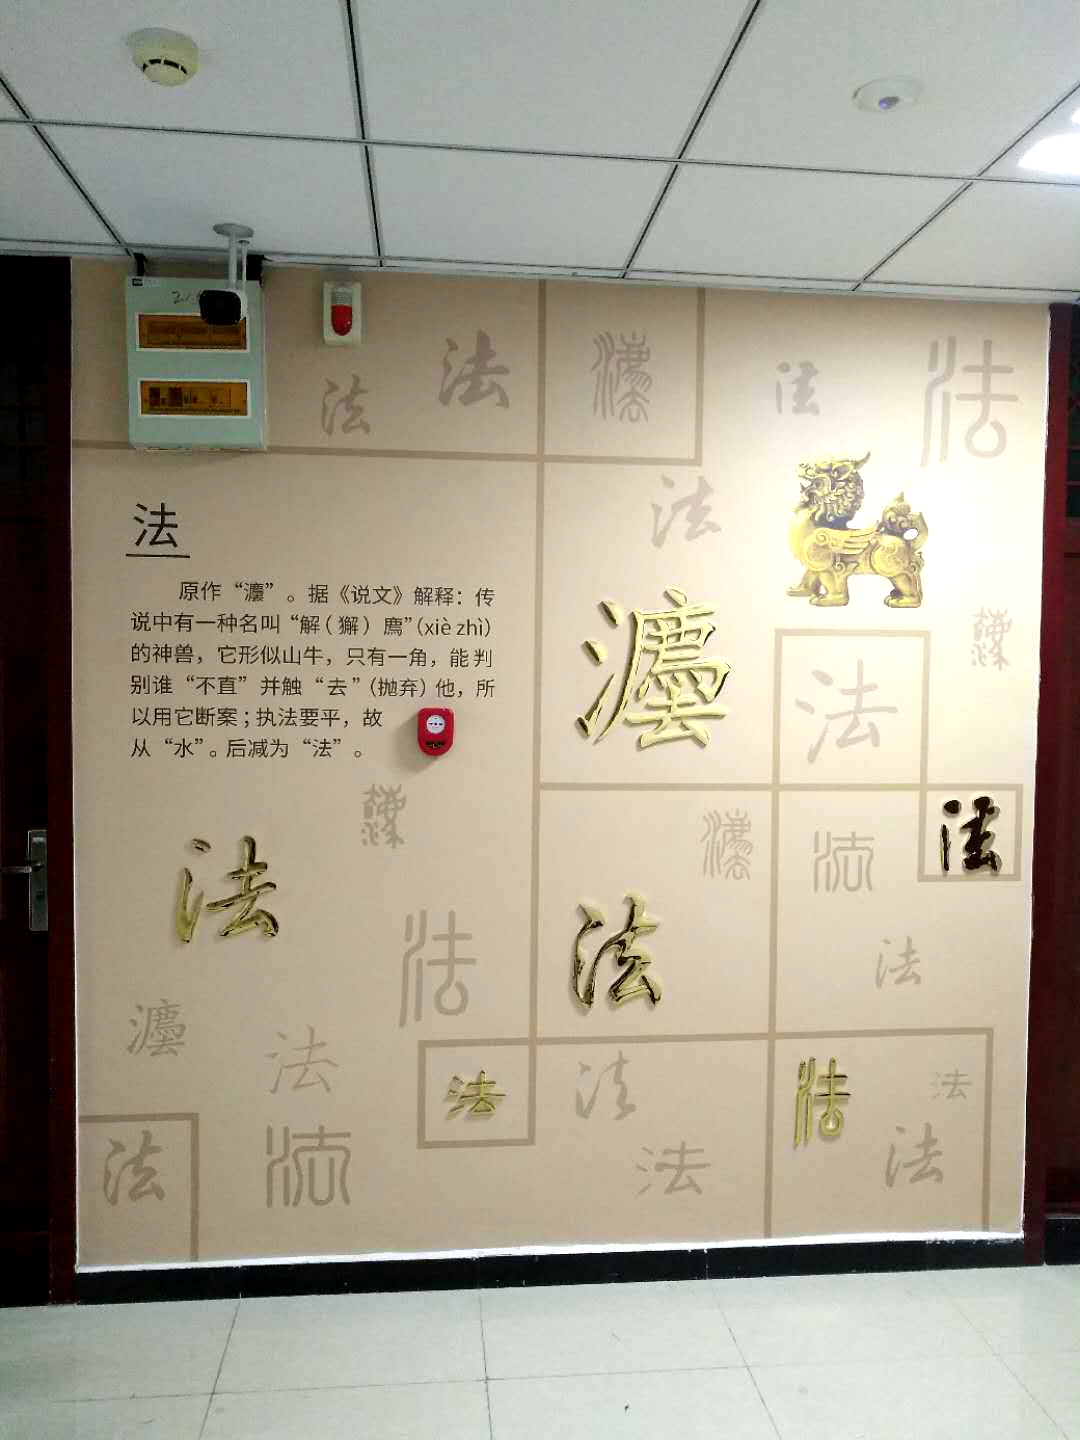 法
法
灋
法
法
法
法
原作“灋”。据《说文》解释：传
说中有一种名叫“解（獬）廌”（xiè zhì）
的神兽，它形似山牛，只有一角，能判
别谁“不直”并触“去”（抛弃）他，所
以用它断案；执法要平，故
从“水”。后减为“法”。
灋
法
灋
法
法
法
法
法
法
灋
法
法
法
法
法
法
法
法
法
法